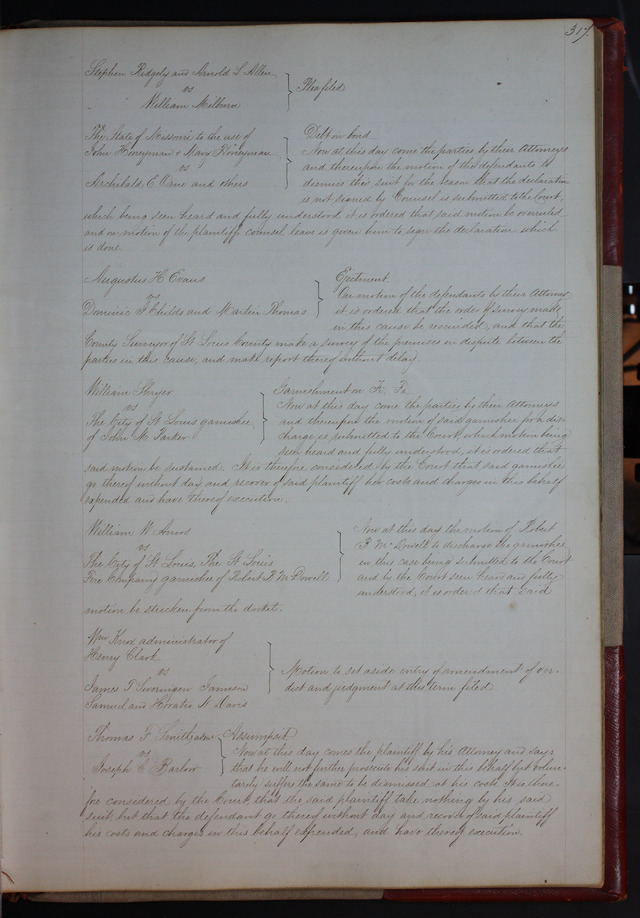 317.
Stephen Ridgely and Arnold L. Allen
vs } Plea filed
William Milburn
The State of Missouri to the use of
John Honeyman & Mary Honeyman
vs
Archibald, C. Cane and others
Debt on bond
Now at this day come the parties by their Attorneys
and thereupon the motion of the defendants to
dismiss this suit for the reason that the declaration
is not signed by Counsel is submitted to the Court,
which being seen heard and fully understood it is ordered that said motion be overruled
and on motion of the plaintiffs counsel leave is given him to sign the declaration which
is done.
Augustus H. Evans
vs
Dominic Childs and Martin Thomas
Ejectment.
On motion of the defendants by their Attorney
it is ordered that the order of survey made
in this cause be rescinded, and that the
County Surveyor of St Louis County make a survey of the premises in dispute between the
parties in this cause, and make report thereof without delay.
William
vs
The City of St Louis garnishee
of John M. Parker
Garnishment on Fi. Fa.
Now at this day come the parties by their Attorneys
and thereupon the motion of said garnishee for a dis-
charge is submitted to the Court, which motion being
seen heard and fully understood, it is ordered that
said motion be sustained. It is therefore considered by the Court that said garnishee
go thereof without day and recover of said plaintiff her costs and charges in this behalf
expended and have thereof execution.
William W.
vs
The City of St Louis, The St Louis
Fire Company garnishee of Robert F. McDowell
Now at this day the motion of Robert
F. McDowell to discharge the garnishee
in this case being submitted to the Court
and by the Court seen heard and fully
understood, it is ordered that said
motion be stricken from the docket.
Wm Knox administrator of
Henry Clark
vs
James T. Sweringen Jameson
Samuel and Horatio N. Davis
Motion to set aside entry of amendment of ver-
dict and judgment at this term filed
Thomas F. Smith
vs
Joseph C. Barlow
Assumpsit
Now at this day comes the plaintiff by his Attorney and says
that he will not further prosecute his suit in this behalf but volun-
tarily suffers the same to be dismissed at his costs. It is there-
fore considered by the Court, that the said plaintiff take nothing by his said
suit, but that the defendant go thereof without day and recover of said plaintiff
his costs and charges in this behalf expended, and have thereof execution.